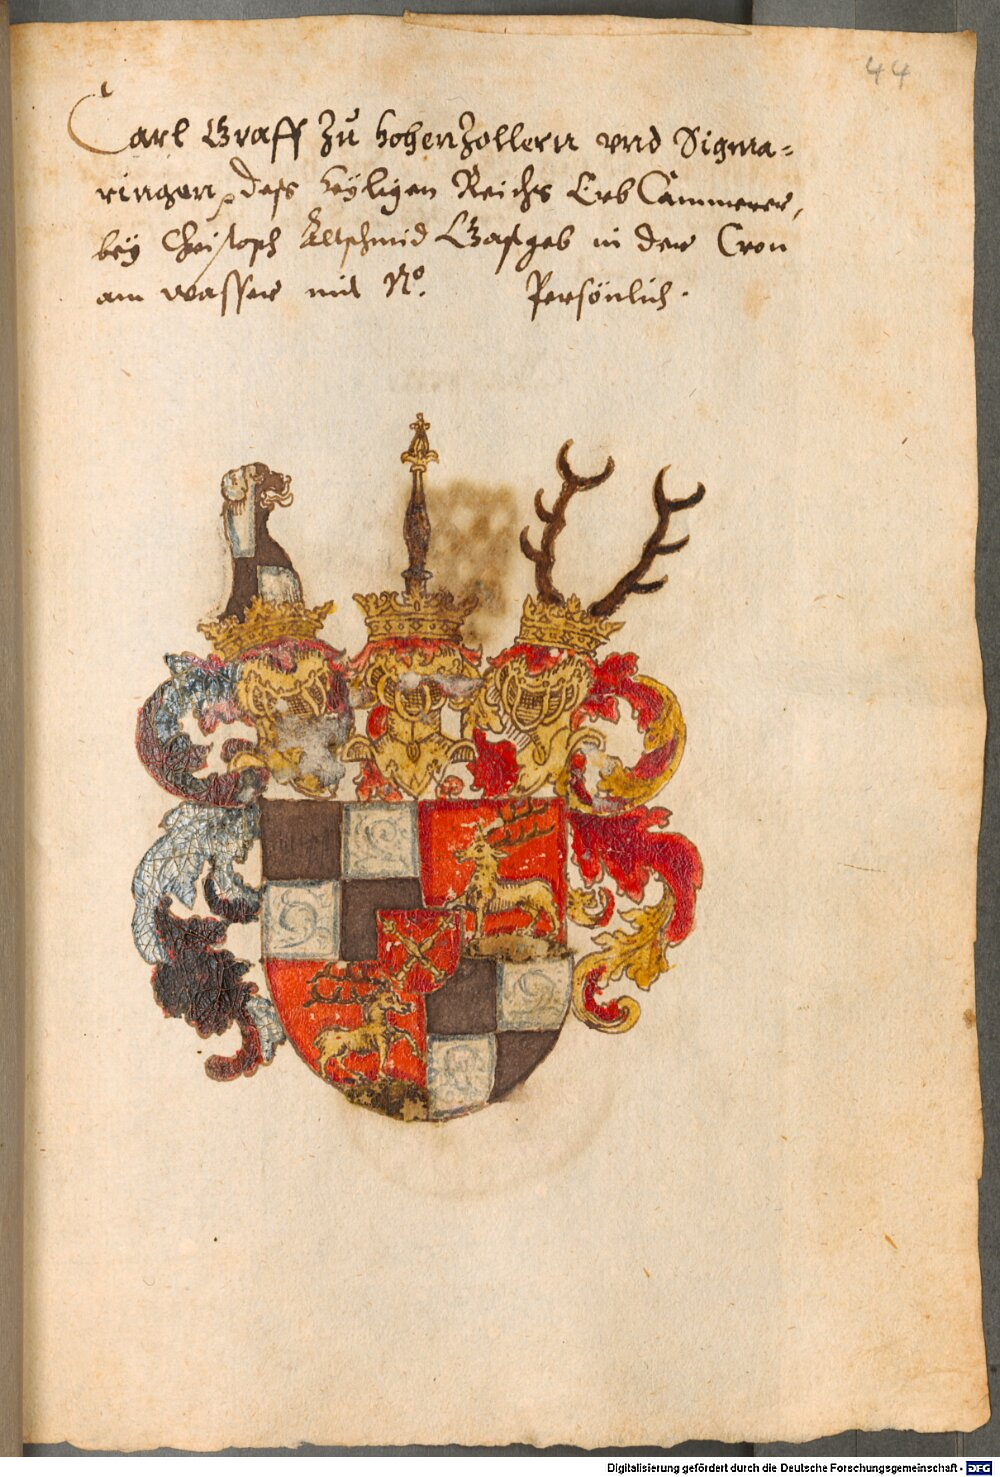 44
Carl Graff zu hohenzollern vnd Sigma-
ringen, dess heyligen Reichs Erb Cammerer,
bey Christoph Altschmid Gastgeb in der Cron
am wasser mit No. Persönlich.
Digitalisierung gefördert durch die Deutsche Forschungsgemeinschaft - DFG